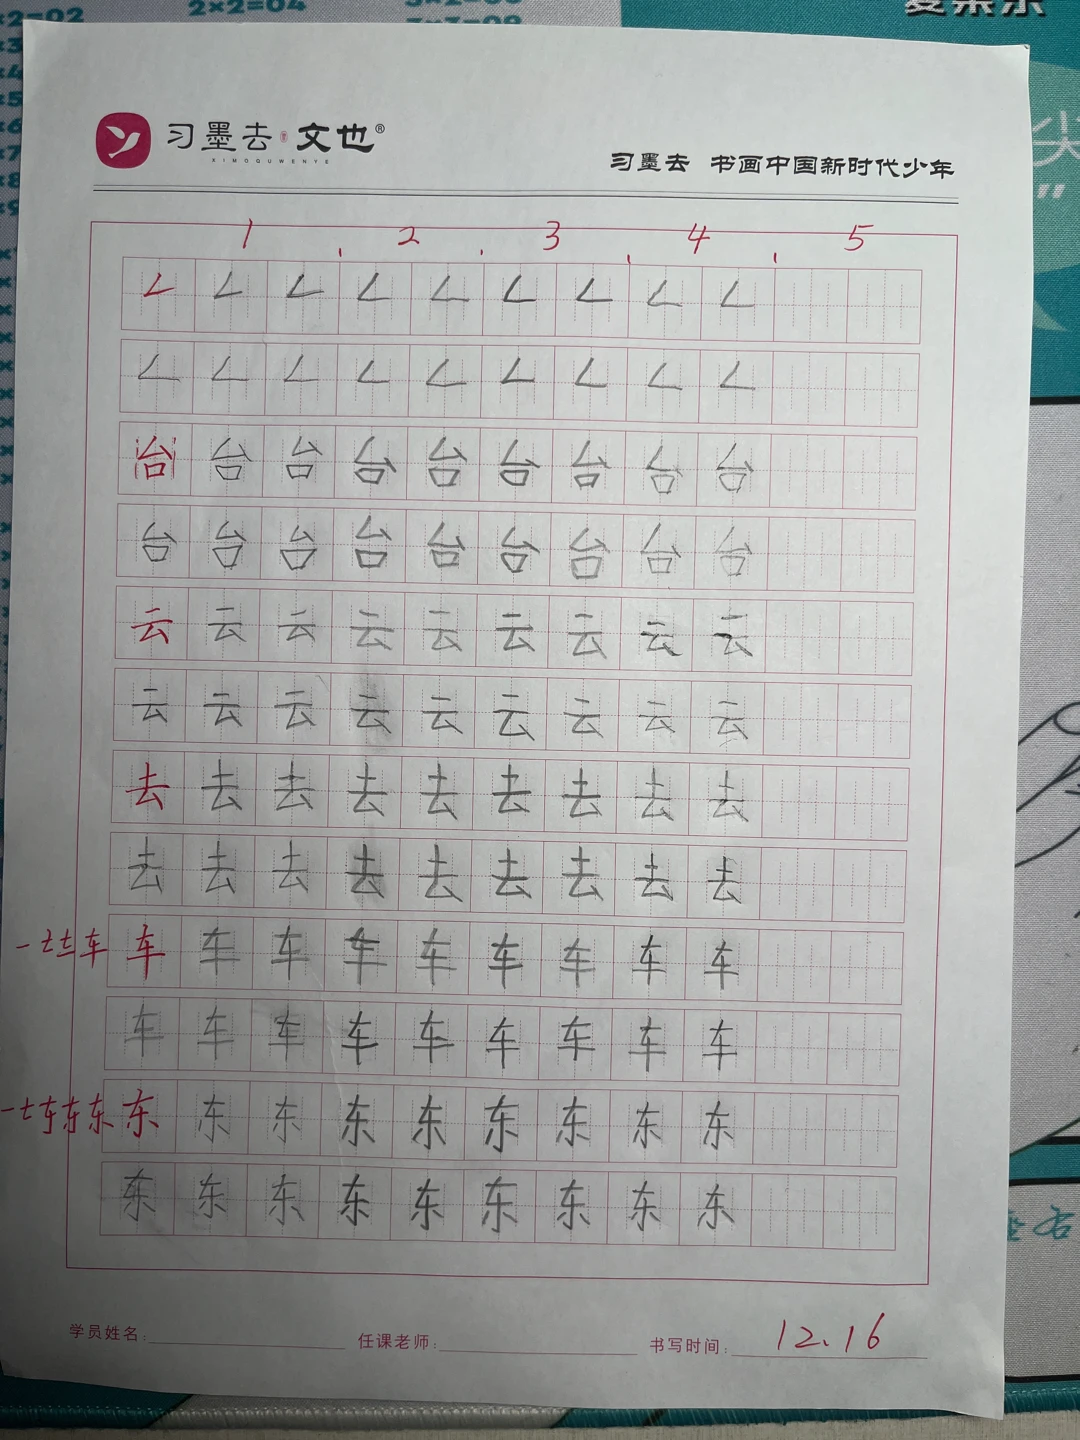 2×2=04
习墨去·文也®
XIMOQUWENYE
习墨去 书画中国新时代少年
1 2 3 4 5
ㄥ ㄥ ㄥ ㄥ ㄥ ㄥ ㄥ ㄥ ㄥ
ㄥ ㄥ ㄥ ㄥ ㄥ ㄥ ㄥ ㄥ ㄥ
台 台 台 台 台 台 台 台 台
台 台 台 台 台 台 台 台 台
云 云 云 云 云 云 云 云 云
云 云 云 云 云 云 云 云 云
去 去 去 去 去 去 去 去 去
去 去 去 去 去 去 去 去 去
车 车 车 车 车 车 车 车 车 车
车 车 车 车 车 车 车 车 车
东 东 东 东 东 东 东 东 东 东
东 东 东 东 东 东 东 东 东
学员姓名: 任课老师: 书写时间: 12.16